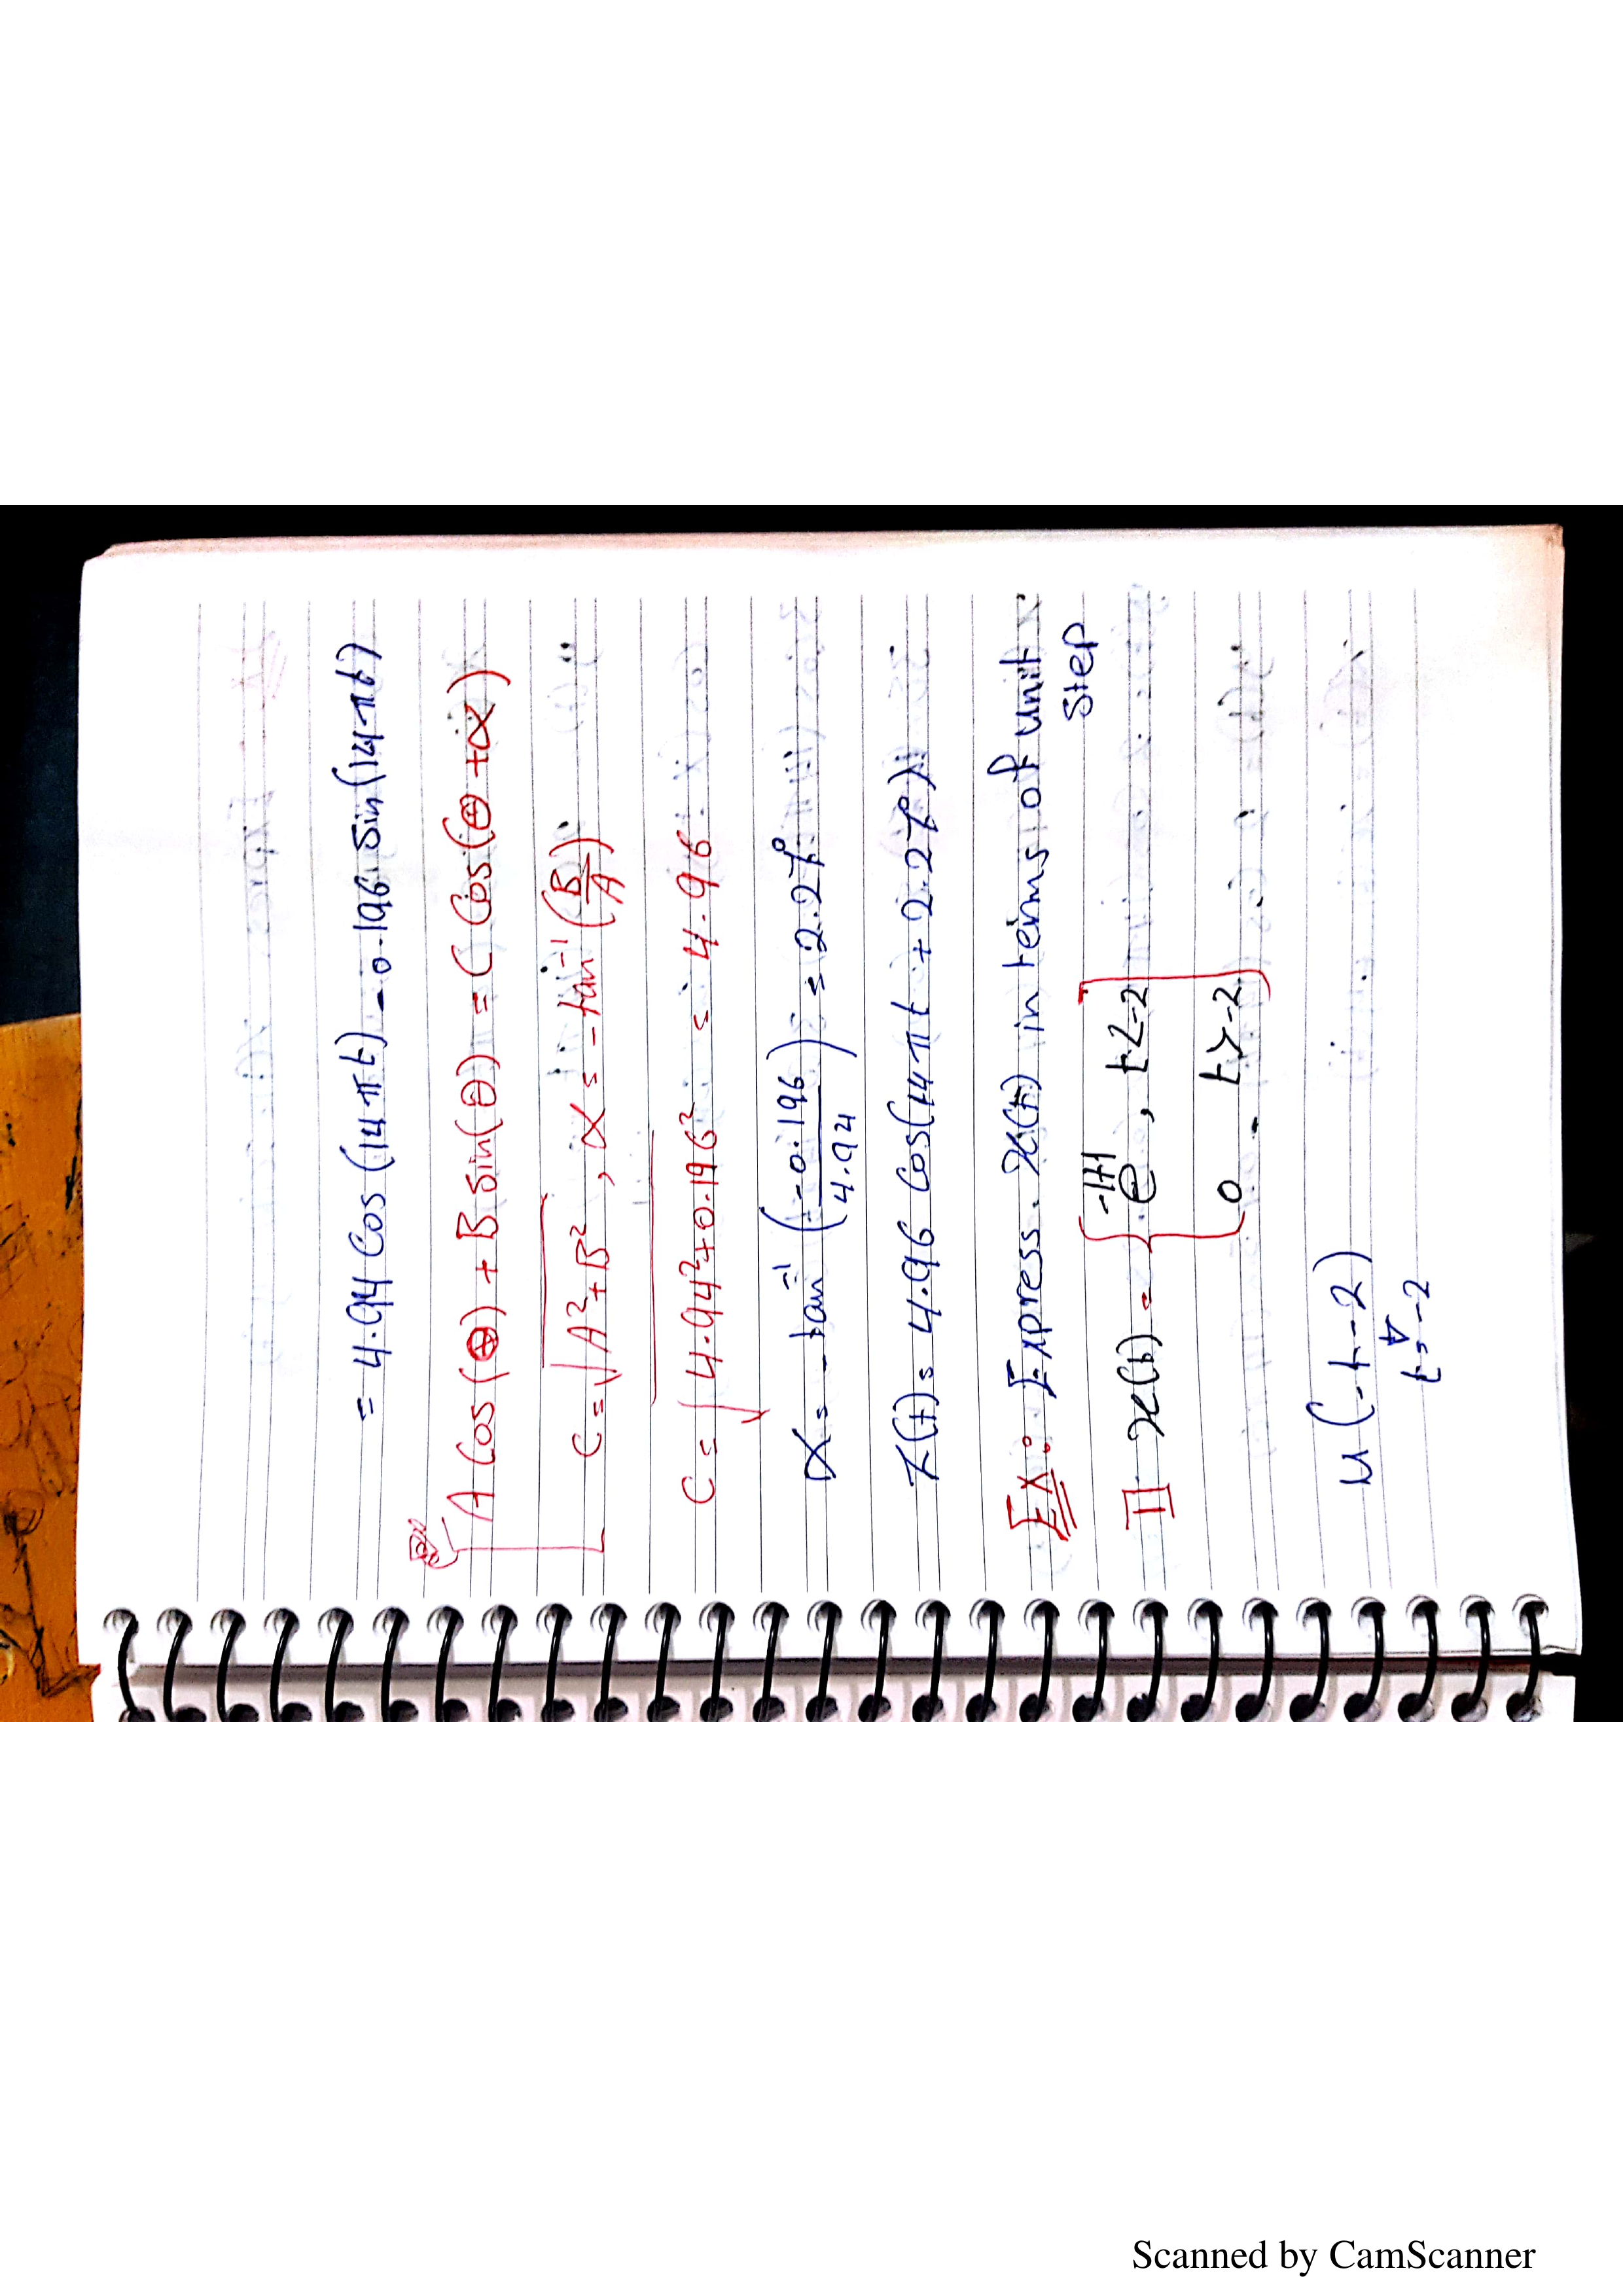 = 4.94 Cos (14πt) - 0.196 sin(14πt)
A Cos(θ) + B sin(θ) = C Cos(θ+α)
C = √A²+B² , α = -tan⁻¹(B/A)
C = √4.94²+0.196² = 4.96
α = -tan⁻¹(-0.196/4.94) = 2.27°
Z(t) = 4.96 Cos(14πt + 2.27°)
EX: Express x(t) in terms of unit
Step
1 x(t) = { e^-|t| , t<-2
0 t>-2
u(-t-2)
t=-2
Scanned by CamScanner